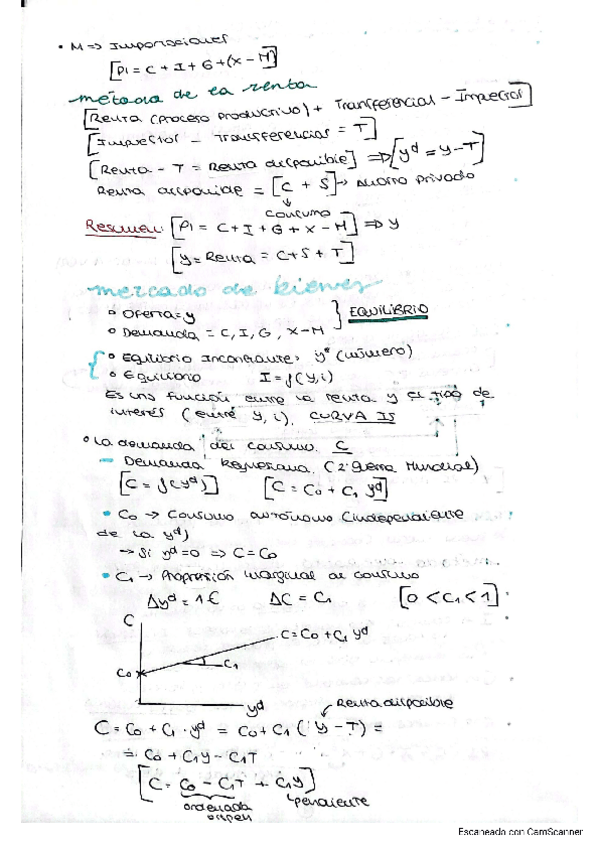 • M => Importaciones
[PI = C + I + G + (X - M)]
método de la renta
[Renta (proceso productivo) + Transferencias - Impuestos]
[Impuestos - Transferencias = T]
[Renta - T = Renta disponible] => [yd = y - T]
Renta disponible = [C + S] → Ahorro privado
↓
consumo
Resumen: [PI = C + I + G + X - M] => y
[y = Renta = C + S + T]
mercado de bienes
° Oferta = y
° Demanda = C, I, G, X - M } EQUILIBRIO
° Equilibrio Incontante: y* (número)
° Equilibrio I = f(y, i)
Es una función entre la renta y el tipo de
interés (entre y, i). CURVA IS
° La demanda del consumo. C
- Demanda keynesiana. (2ª guerra Mundial)
[C = f(yd)] [C = C0 + C1 yd]
• C0 → Consumo autónomo (independiente
de la yd)
→ Si yd = 0 => C = C0
• C1 → Propensión marginal al consumo
Δyd = 1€ ΔC = C1 [0 < C1 < 1]
C
C = C0 + C1 yd
C0
C1
yd
Renta disponible
C = C0 + C1 · yd = C0 + C1 (y - T) =
= C0 + C1y - C1T
[C = C0 - C1T + C1y]
ordenada pendiente
origen
Escaneado con CamScanner